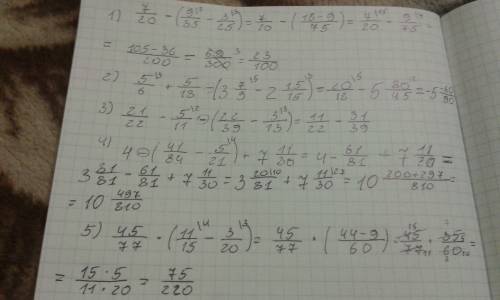 1) 7/20 - (9/35 - 3/25) = 7/20 - (18-9/75) = 4/20 - 9/75 =
= 105-36/200 = 69/300 = 23/100
2) 5/6 + 5/18 - (3 7/3 - 2 15/15) = 20/18 - 5 80/45 = -5
3) 21/22 - 5/11 - (22/39 - 3/13) = 11/22 - 31/39
4) 4 - (41/84 - 5/21) + 7 11/30 = 4 - 61/81 + 7 11/20 =
3 81/81 - 61/81 + 7 11/30 = 3 20/81 + 7 11/30 = 10 200+297/810 =
= 10 497/810
5) 45/77 · (11/15 - 3/20) = 45/77 · (44-9/60) = 45/77 · 35/60 =
= 15·5/11·20 = 75/220